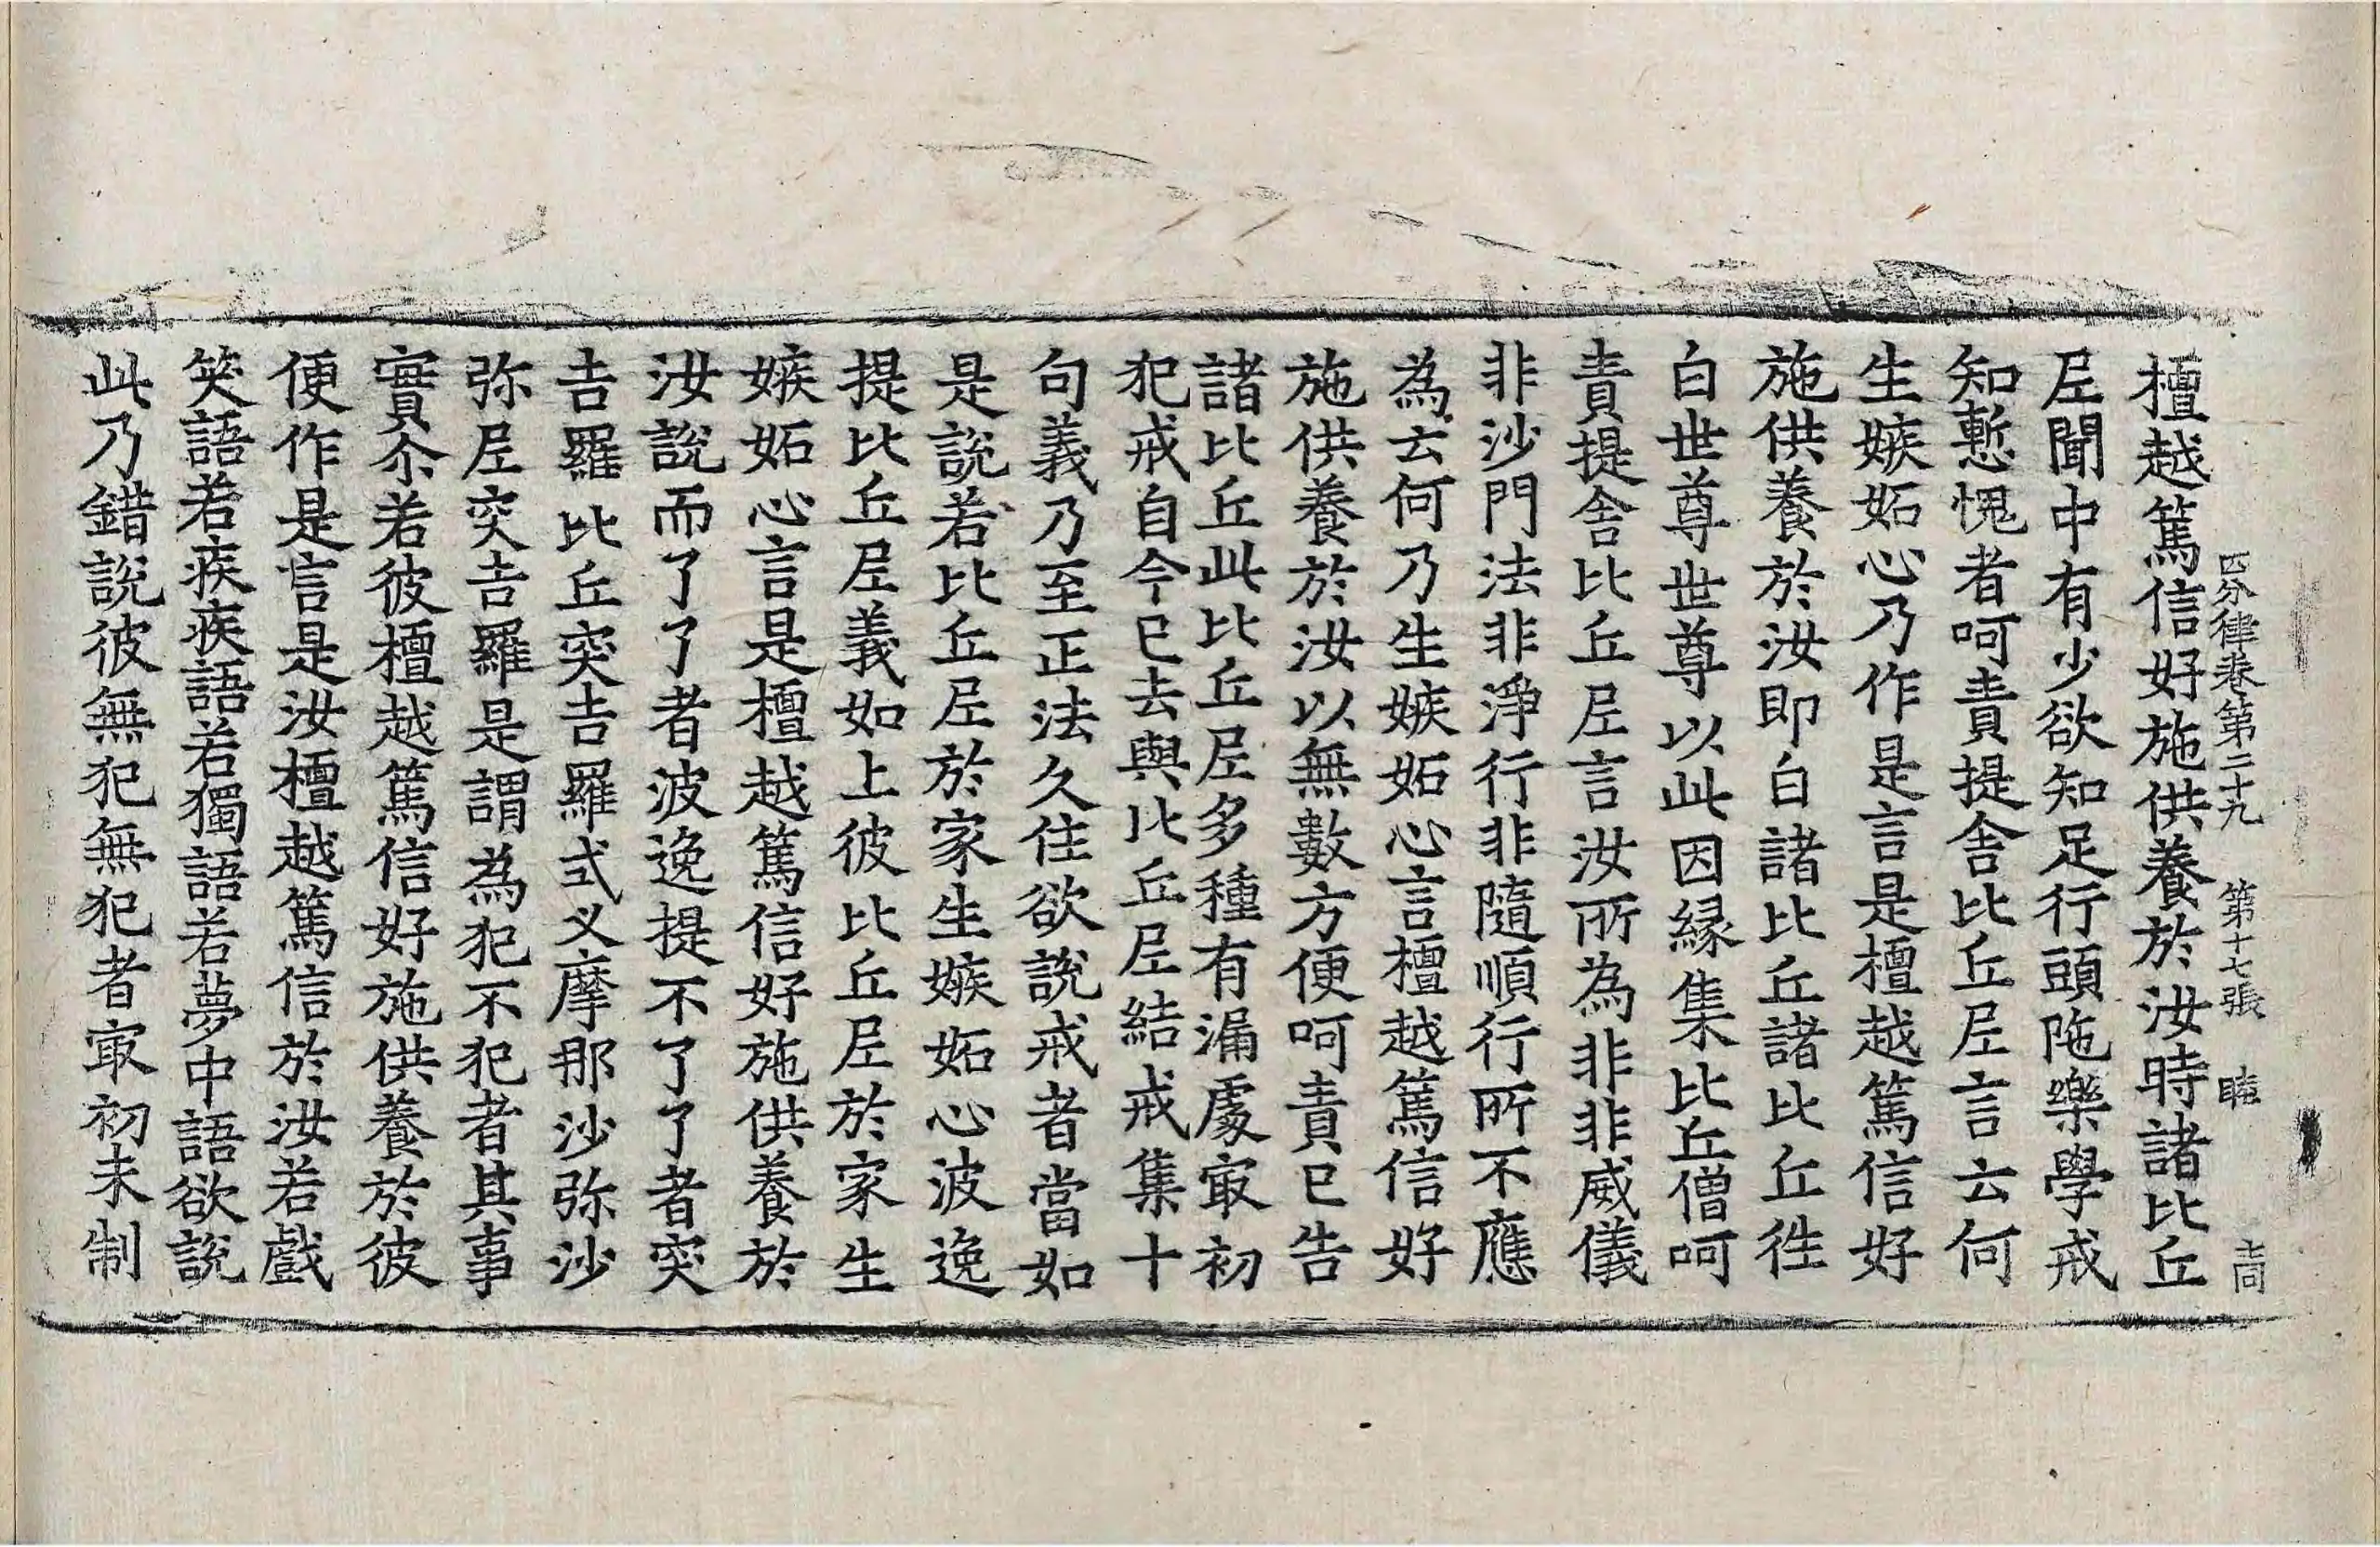 四分律卷第二十九 第十七張 睦 𠮷同
檀越篤信好施供養於汝時諸比丘
𡰱聞中有少欲知足行頭陁樂學戒
知慙愧者呵責提舍比丘𡰱言云何
生嫉妬心乃作是言是檀越篤信好
施供養於汝即白諸比丘諸比丘徃
白世尊世尊以此因緣集比丘僧呵
責提舍比丘𡰱言汝所為非非威儀
非沙門法非淨行非隨順行所不應
為云何乃生嫉妬心言檀越篤信好
施供養於汝以無數方便呵責已告
諸比丘此比丘𡰱多種有漏處㝡初
犯戒自今已去與比丘𡰱結戒集十
句義乃至正法久住欲說戒者當如
是說若比丘𡰱於家生嫉妬心波逸
提比丘𡰱義如上彼比丘𡰱於家生
嫉妬心言是檀越篤信好施供養於
汝說而了了者波逸提不了了者突
吉羅比丘突吉羅式叉摩那沙弥沙
弥𡰱突吉羅是謂為犯不犯者其事
實尒若彼檀越篤信好施供養於彼
便作是言是汝檀越篤信於汝若戲
笑語若疾疾語若獨語若夢中語欲說
此乃錯說彼無犯無犯者㝡初未制